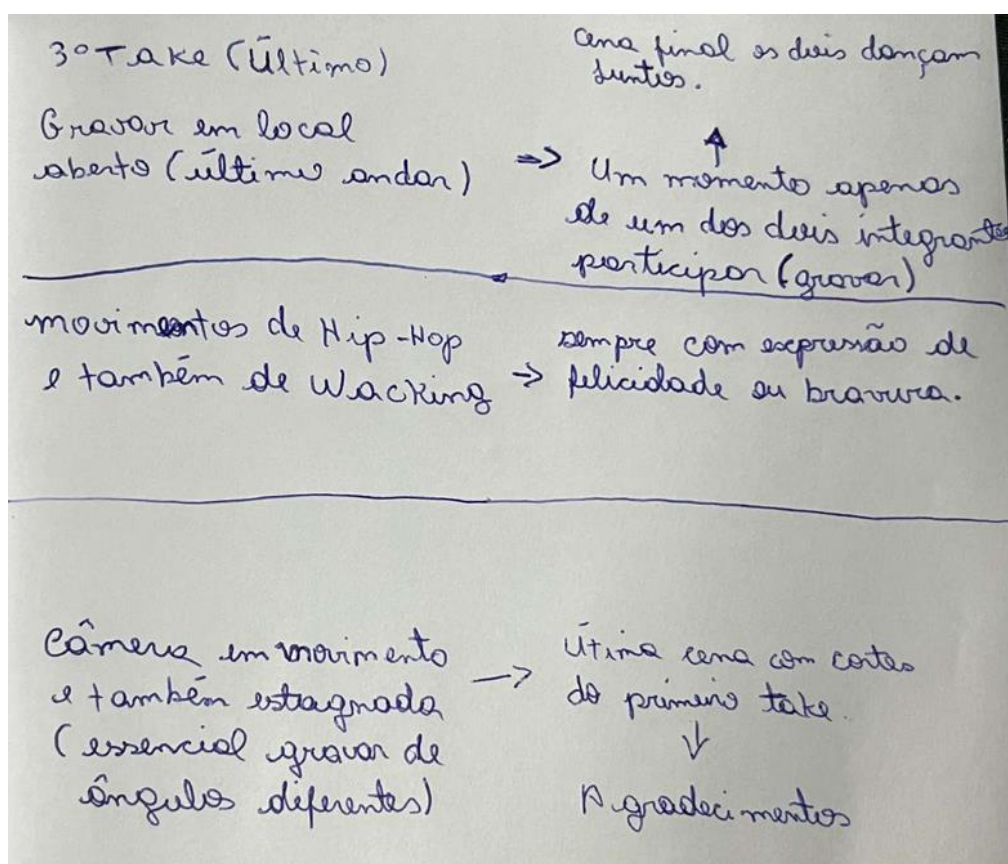 3º Take (Último)
Gravar em local
aberto (último andar) =>
cena final os dois dançam
juntos.
↑
Um momento apenas
de um dos dois integrantes
participar (gravar)
movimentos de Hip-Hop
e também de Wacking ->
sempre com expressão de
felicidade ou bravura.
Câmera em movimento
e também estagnada ->
(essencial gravar de
ângulos diferentes)
Útima cena com cortes
do primeiro take.
↓
Agradecimentos